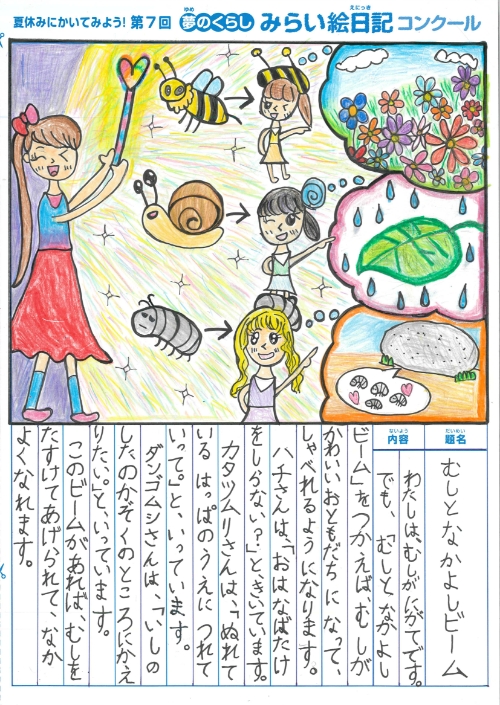 夏休みにかいてみよう！第7回 夢のくらし みらい絵日記コンクール
ゆめ
えにっき
だいめい
題名
むしとなかよしビーム
ないよう
内容
わたしは、むしがにがてです。
でも、「むしとなかよし
ビーム」をつかえば、むしが
かわいいおともだちになって、
しゃべれるようになります。
ハチさんは、「おはなばたけ
をしらない？」と、きいています。
カタツムリさんは、「ぬれて
いるはっぱのうえにつれて
いって。」と、いっています。
ダンゴムシさんは、「いしの
したのかぞくのところにかえ
りたい。」と、いっています。
このビームがあれば、むしを
たすけてあげられて、なか
よくなれます。